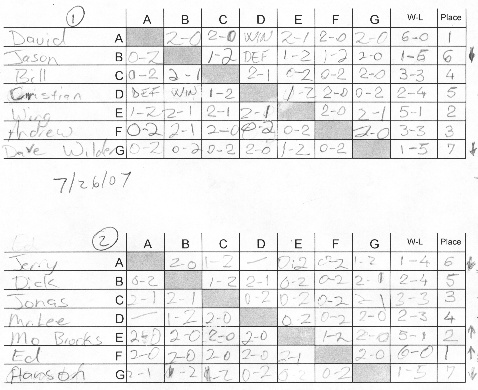 1 A B C D E F G W-L Place
David A 2-0 2-0 WIN 2-1 2-0 2-0 6-0 1
Jason B 0-2 1-2 DEF 1-2 1-2 2-0 1-5 6
Bill C 0-2 2-1 2-1 0-2 0-2 2-0 3-3 4
Christian D DEF WIN 1-2 1-2 2-0 0-2 2-4 5
Wing E 1-2 2-1 2-1 2-1 2-0 2-1 5-1 2
Andrew F 0-2 2-1 2-0 0-2 0-2 2-0 3-3 3
Dave Wilder G 0-2 0-2 0-2 2-0 1-2 0-2 1-5 7
7/26/07
2 A B C D E F G W-L Place
Jerry A 2-0 1-2 — 0-2 0-2 1-2 1-4 6
Dick B 0-2 1-2 2-1 0-2 0-2 2-1 2-4 5
Jonas C 2-1 2-1 0-2 0-2 0-2 2-1 3-3 3
Mr. Lee D — 1-2 2-0 0-2 0-2 2-0 2-3 4
Mo Brooks E 2-0 2-0 2-0 2-0 1-2 2-0 5-1 2
Ed F 2-0 2-0 2-0 2-0 2-1 2-0 6-0 1
Hanson G 2-1 1-2 1-2 0-2 0-2 0-2 1-5 7